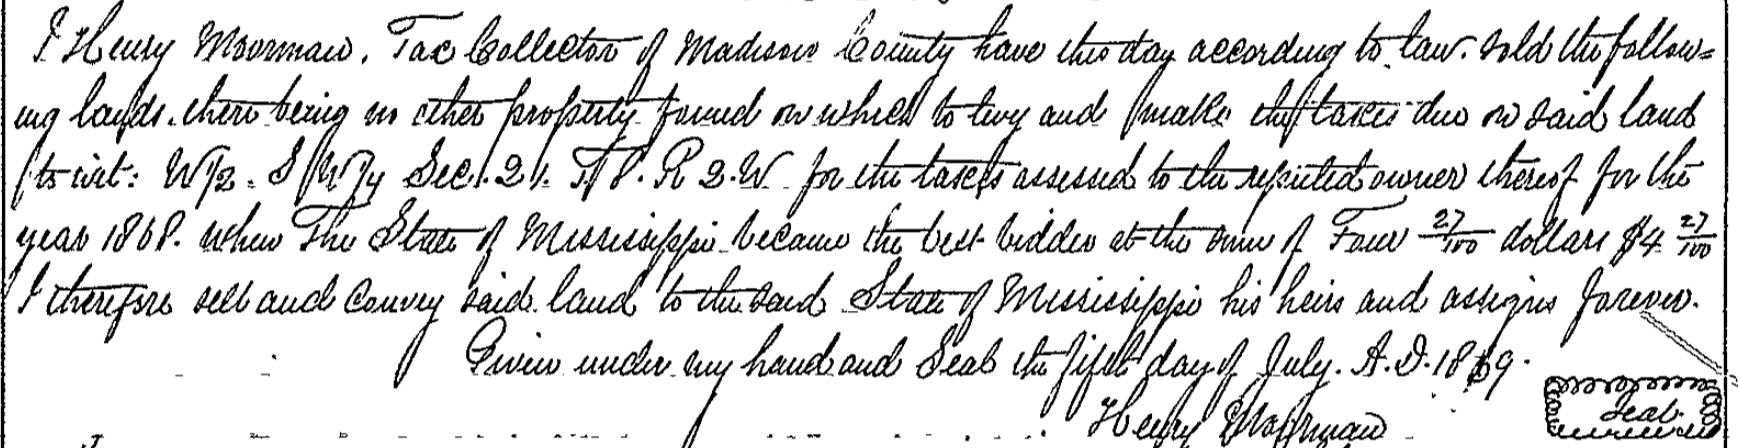 I Henry Moorman, Tax Collector of Madison County have this day according to law. Sold the follow=
ing lands. there being no other property found on which to levy and make the taxes due on said land
to wit: W/2. S W/4 Sec. 21. T 8. R 2. W for the taxes assessed to the reputed owner thereof for the
year 1868. when The State of Mississippi became the best bidder at the sum of Four 27/100 dollars $4 27/100
I therefore sell and convey said land to the said State of Mississippi his heirs and assigns forever.
Given under my hand and Seal the fifth day of July. A.D. 1869.
Henry Moorman
Seal